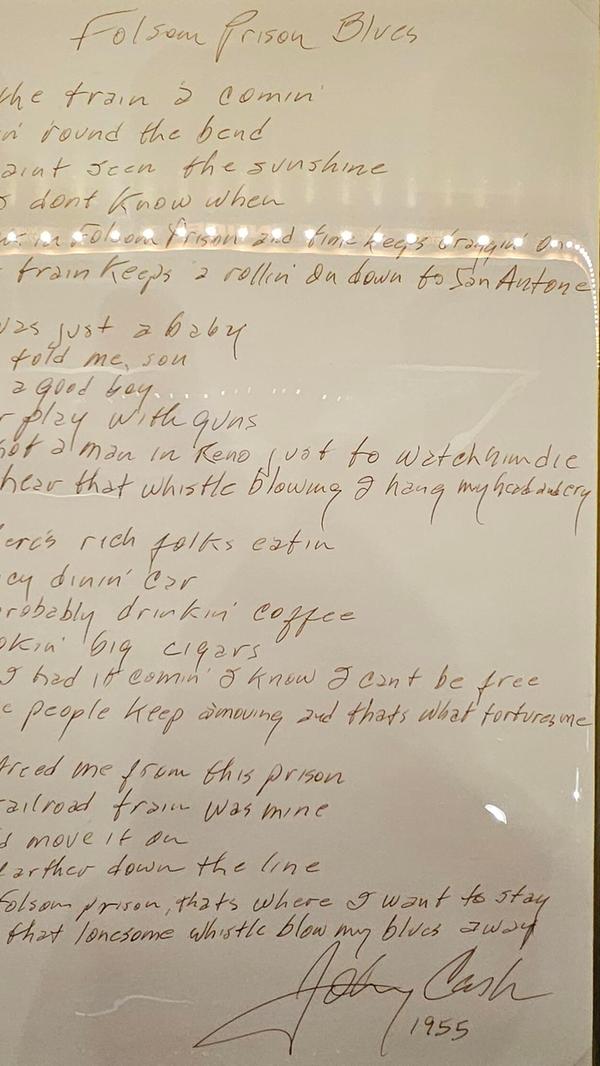 Folsom Prison Blues
the train a comin'
'round the bend
aint seen the sunshine
dont know when
in Folsom Prison and time keeps draggin' on
train keeps a rollin' on down to San Antone
was just a baby
told me, son
a good boy
play with guns
a man in Reno just to watch him die
hear that whistle blowing I hang my head and cry
rich folks eatin
dinin' car
probably drinkin' coffee
big cigars
I had it comin' I know I cant be free
people keep amoving and thats what tortures me
freed me from this prison
railroad train was mine
move it on
farther down the line
Folsom prison, thats where I want to stay
that lonesome whistle blow my blues away
Johny Cash
1955